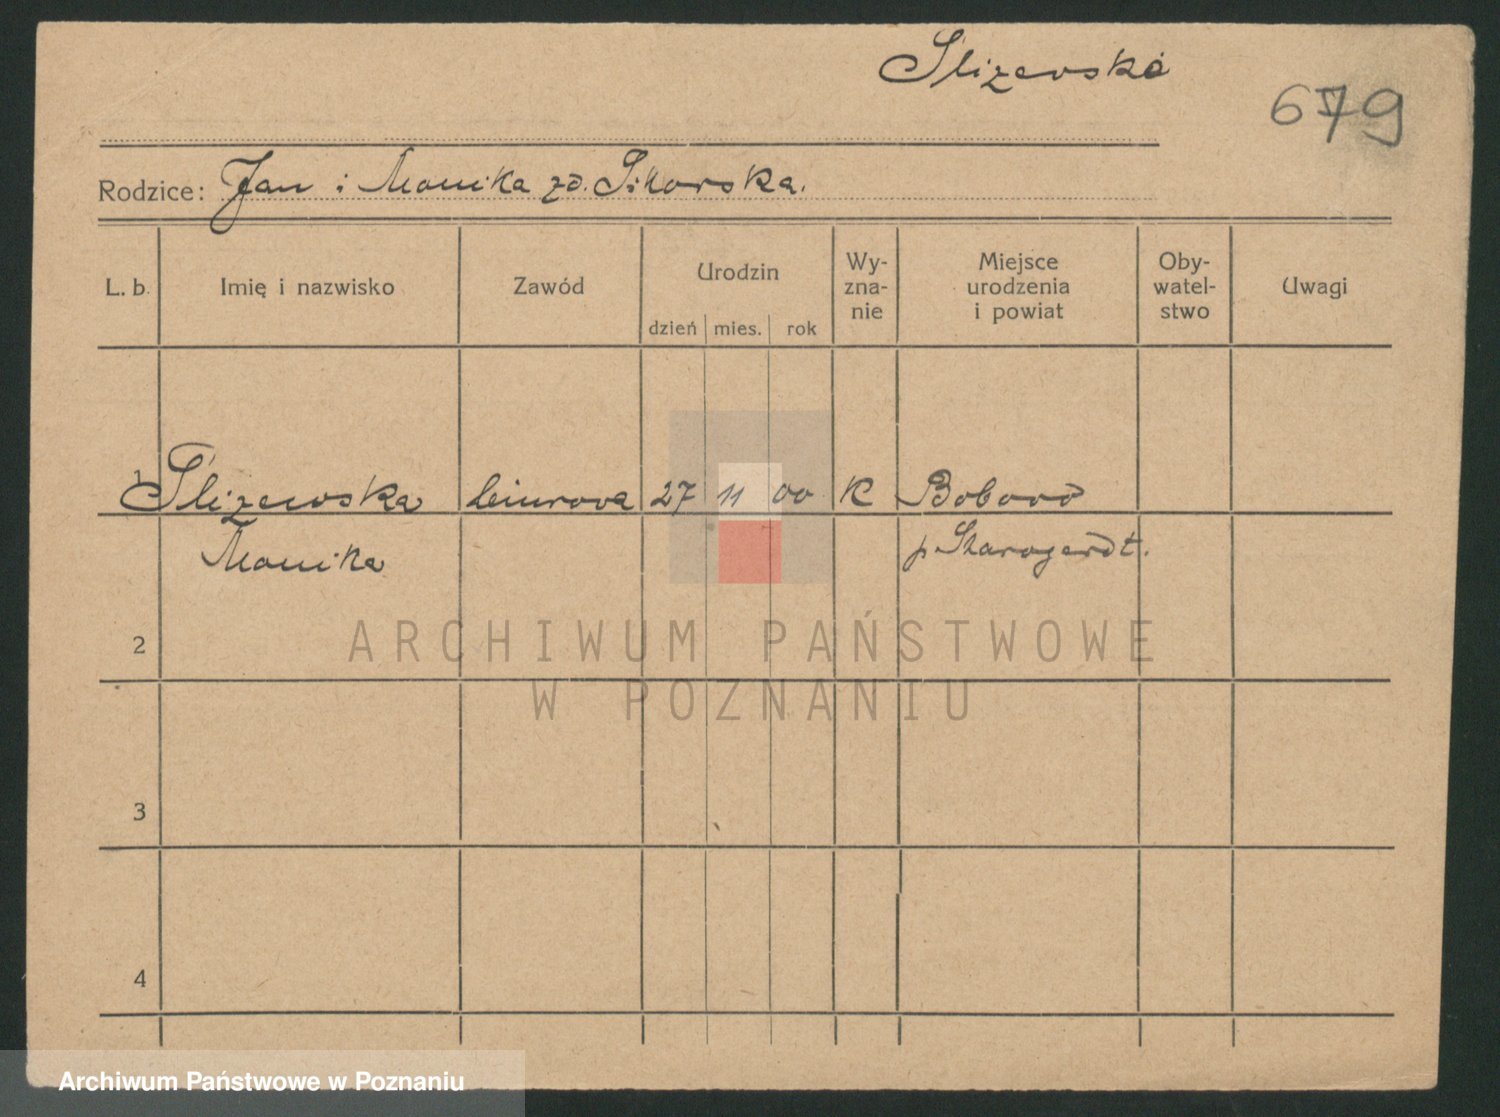 Śliżewska
679
Rodzice: Jan i Monika zd. Sikorska.
L. b. Imię i nazwisko Zawód Urodzin Wy-zna-nie Miejsce urodzenia i powiat Oby-watel-stwo Uwagi
dzień mies. rok
1 Śliżewska 27 11 00 K Bobowo
Monika p. Starogard
2
ARCHIWUM PAŃSTWOWE
W POZNANIU
3
4
Archiwum Państwowe w Poznaniu